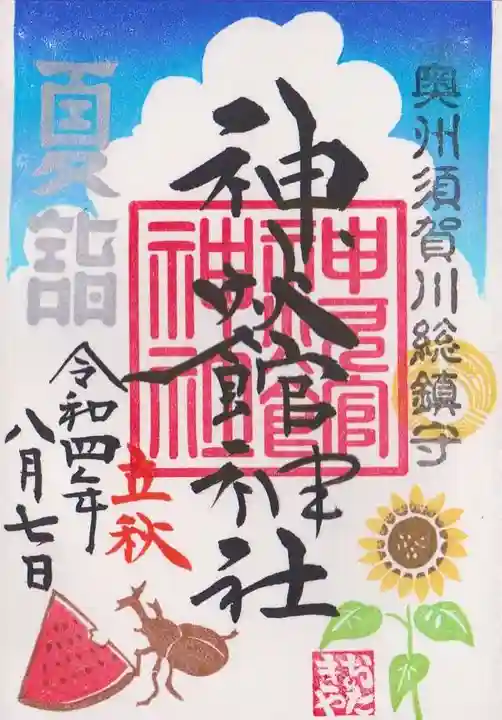 奥州須賀川総鎮守
神炊館神社
夏詣
立秋
令和四年
八月七日
おた
きや